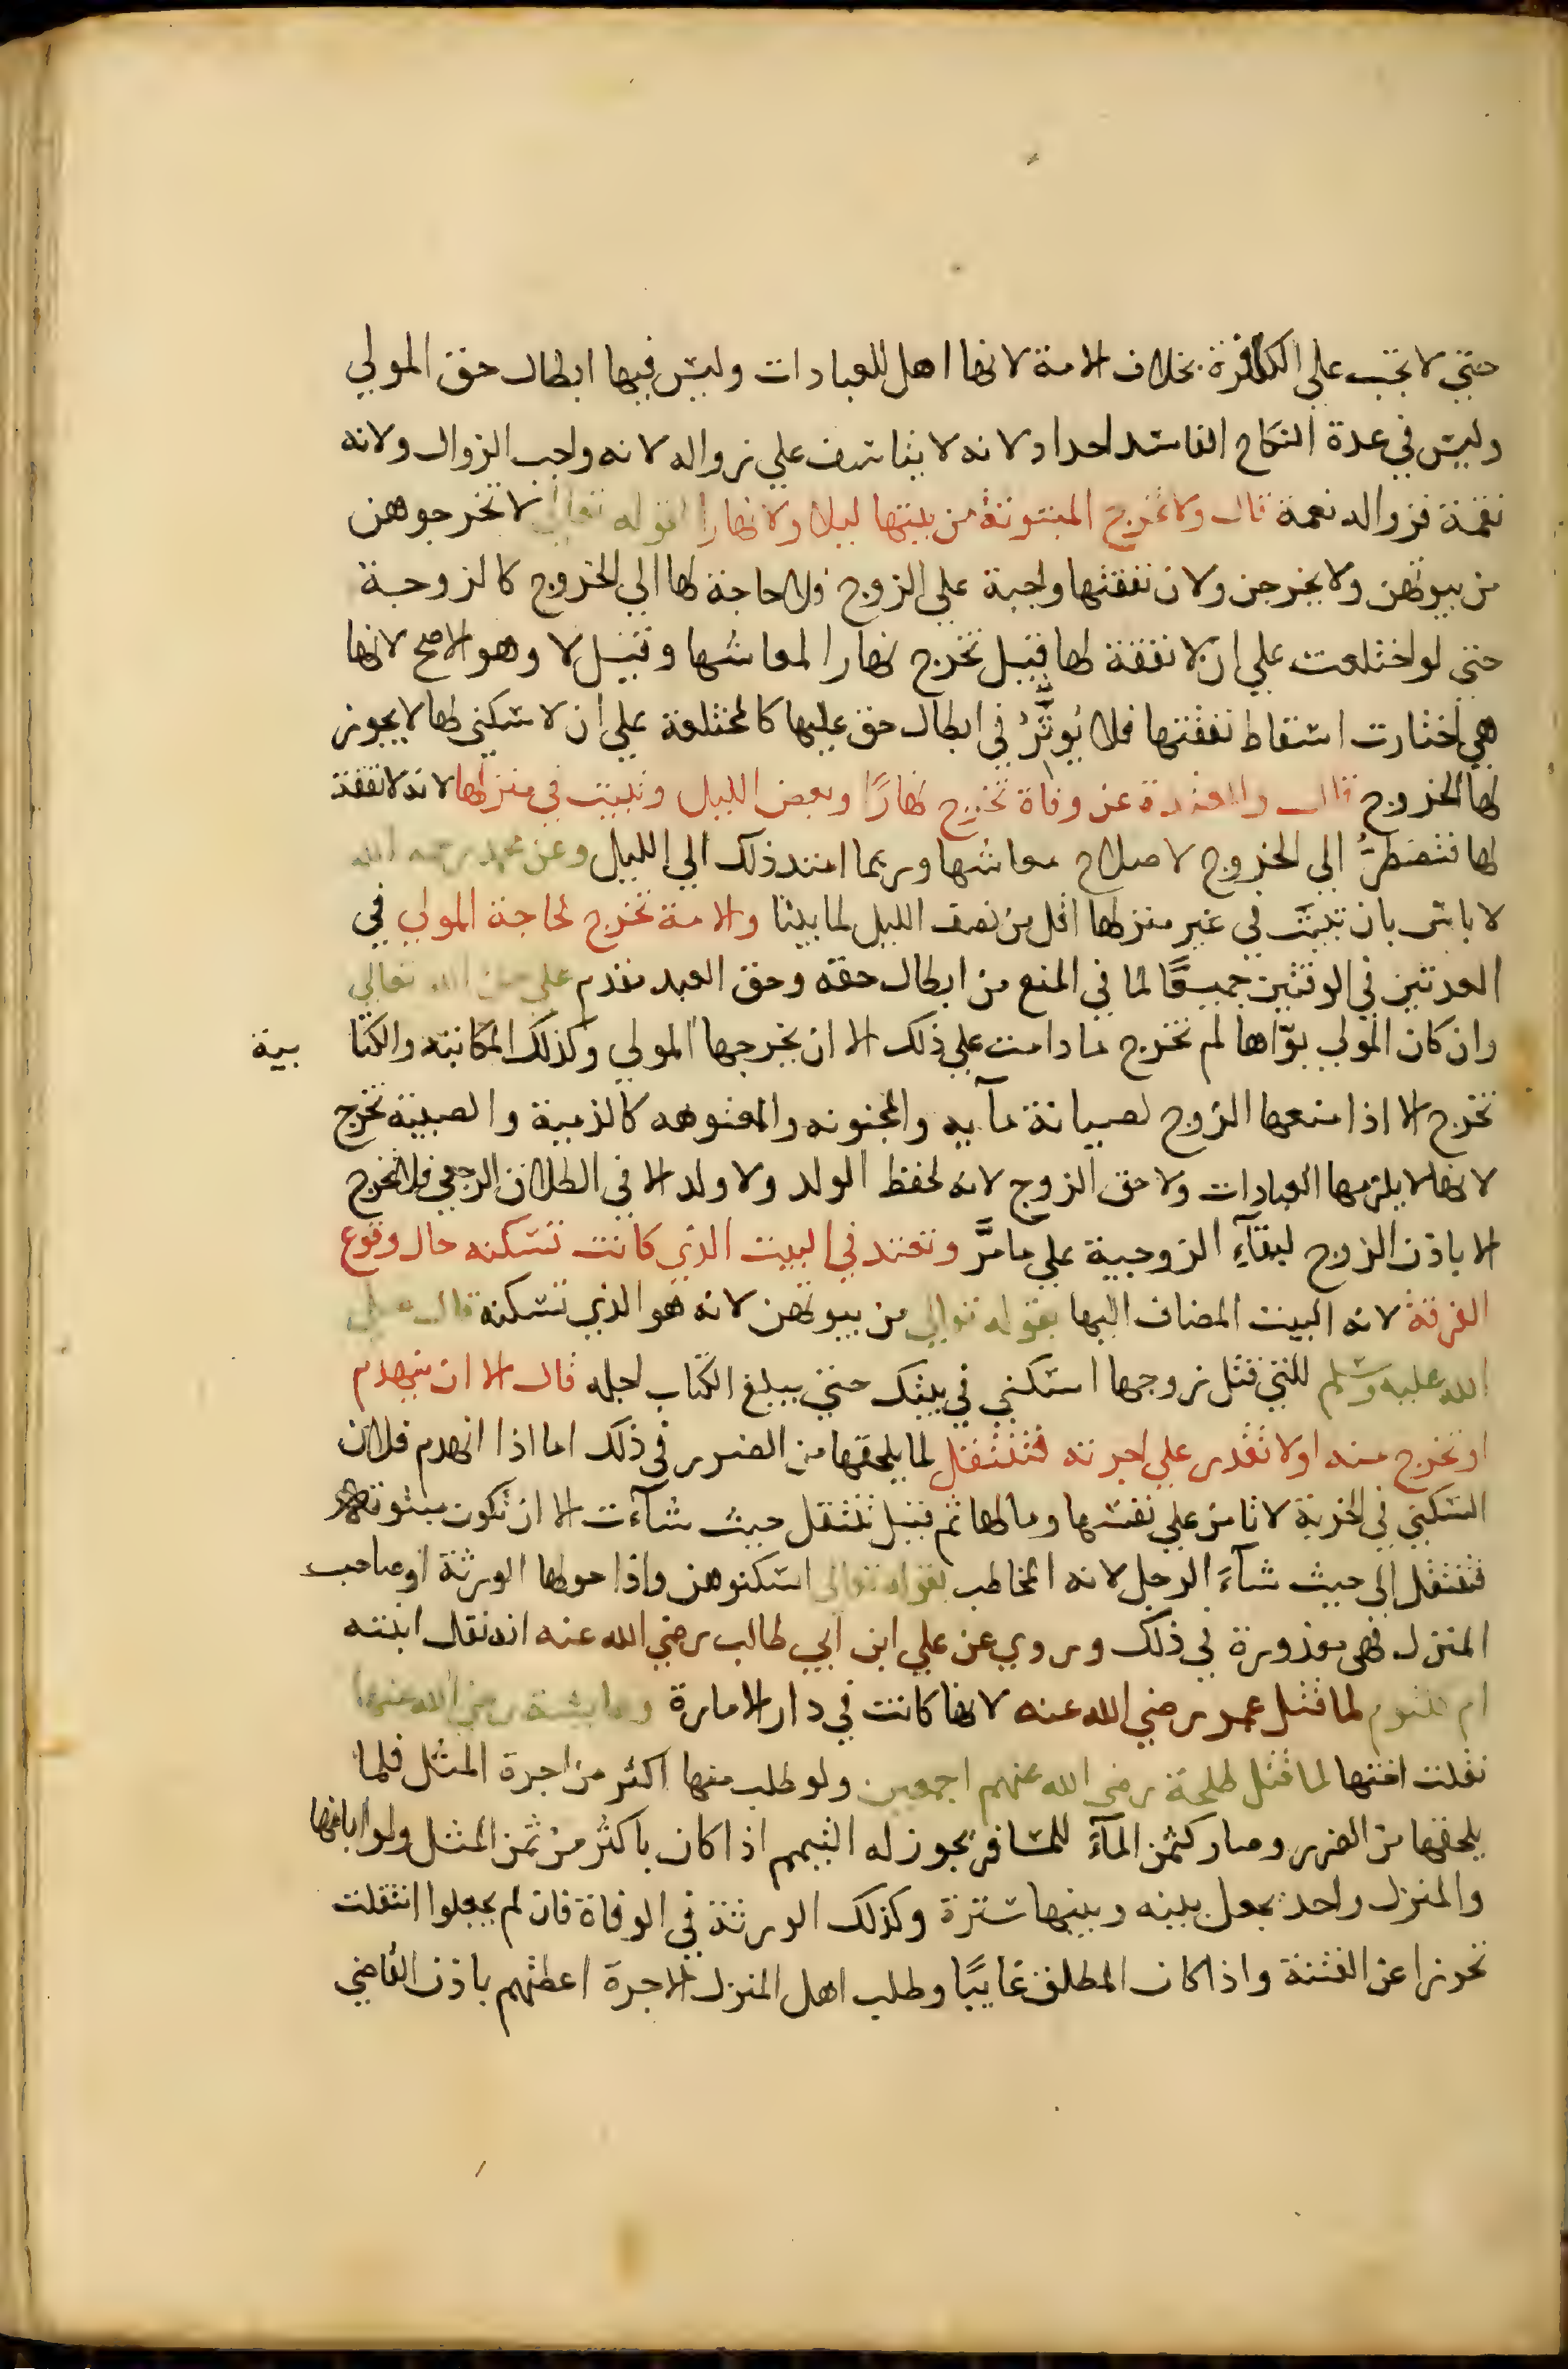 حتي لا تجب علي الكافرة بخلاف الامة لانها اهل للعبادات وليس فيها ابطال حق المولي
وليس في عدة النكاح الفاسد احداد لانه لا يتاسف علي زواله لانه واجب الزوال ولانه
نقمة فزواله نعمة قال ولا تخرج المبتوتة من بيتها ليلا ولا نهارا لقوله تعالي لا تخرجوهن
من بيوتهن ولا يخرجن ولان نفقتها واجبة علي الزوج ولا حاجة لها الي الخروج كالزوجة
حتي لو اختلعت علي ان لا نفقة لها قيل تخرج نهارا لمعاشها وقيل لا وهو الاصح لانها
هي اختارت اسقاط نفقتها فلا يُوثِّرُ في ابطال حق عليها كالمختلعة علي ان لا سكني لها لا يجوز
لها الخروج قال والمعتدة عن وفاة تخرج نهارًا وبعض الليل وتبيت في منزلها لانه لا نفقة
لها فتضطرُّ الي الخروج لاصلاح معاشها وربما امتد ذلك الي الليل وعن محمد رحمه الله
لا باس بان تبيت في غير منزلها اقل من نصف الليل لما بينا والامة تخرج لحاجة المولي في
العدتين في الوقتين جميعًا لما في المنع من ابطال حقه وحق العبد مقدم علي حق الله تعالي
وان كان المولي بوّاها لم تخرج ما دامت علي ذلك الا ان يخرجها المولي وكذلك المكاتبه والكتا بية
تخرج الا اذا منعها الزوج لصيانة مآيه والمجنونه والمعتوهه كالذمية والصبية تخرج
لانها لا يلزمها العبادات ولا حق الزوج لانه لحفظ الولد ولا ولد الا في الطلاق الرجعي فلا تخرج
الا باذن الزوج لبقآءِ الزوجية علي ما مرَّ وتعتد في البيت الذي كانت تسكنه حال وقوع
الفرقة لانه البيت المضاف اليها بقوله تعالي من بيوتهن لانه هو الذي تسكنه قال صلي
الله عليه وسلم للتي قتل زوجها اسكني في بيتك حتي يبلغ الكتاب اجله قال الا ان ينهدم
او تخرج منه اولا تقدر علي اجرته فتنتقل لما يلحقها من الضرر في ذلك اما اذا انهدم فلان
السكني في الخربة لا تامن علي نفسها ومالها ثم قيل تنتقل حيث شآءت الا ان تكون مبتوتة
فتنتقل الي حيث شآءَ الرجل لانه المخاطب بقوله تعالي اسكنوهن واذا حولها الورثة او صاحب
المنزل فهي معذورة في ذلك وروي عن علي ابن ابي طالب رضي الله عنه انه نقل ابنته
ام كلثوم لما قتل عمر رضي الله عنه لانها كانت في دار الامارة وعايشة رضي الله عنها
نقلت اختها لما قتل طلحة رضي الله عنهم اجمعين ولو طلب منها اكثر من اجرة المثل فلما
يلحقها من الضرر وصار كثمن المآءَ للمسافر يجوز له التيمم اذا كان باكثر من ثمن المثل ولو ابانها
والمنزل واحد يجعل بينه وبينها سترة وكذلك الورثة في الوفاة فان لم يجعلوا انتقلت
تحرزا عن الفتنة واذا كان المطلق غايبًا وطلب اهل المنزل الاجرة اعطتهم باذن القاضي